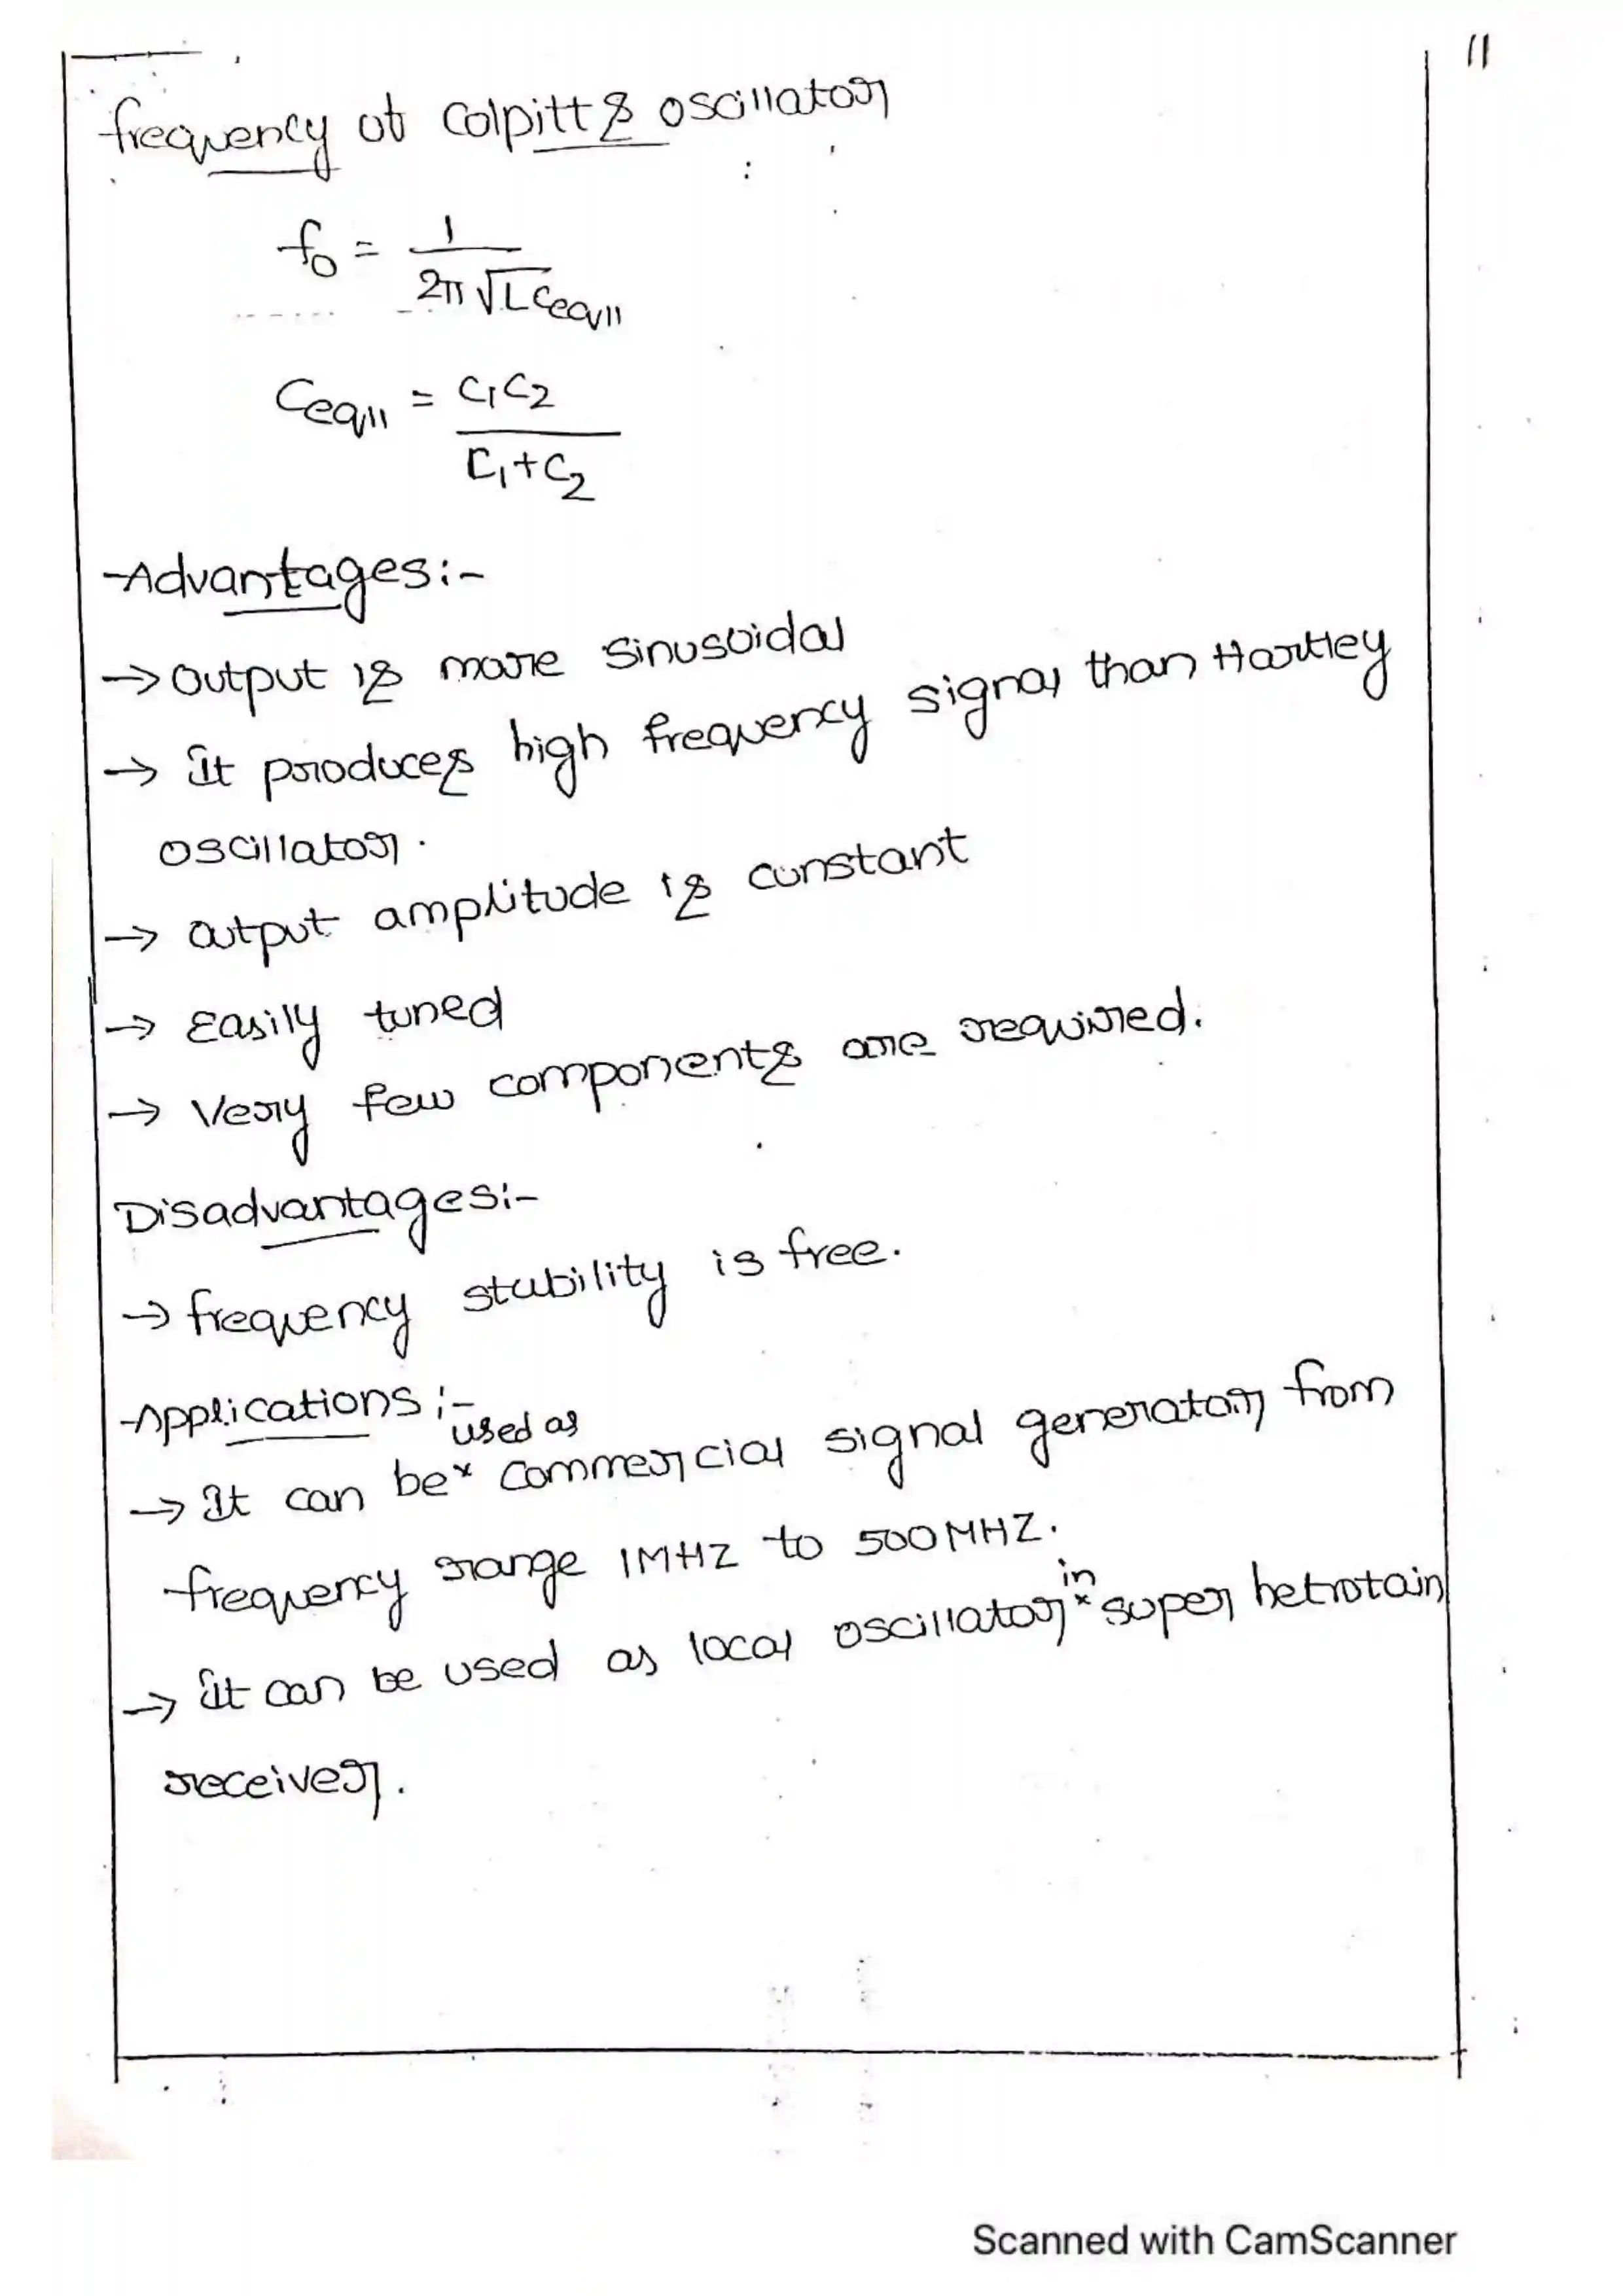 11
frequency of Colpitts oscillator
:
fo = 1
2π √LCequ
Cequ = C1C2
C1+C2
Advantages:-
→ Output is more sinusoidal
→ it produces high frequency signal than Hartley
oscillator.
→ Output amplitude is constant
→ Easily tuned
→ Very few components are required.
Disadvantages:-
→ frequency stability is free.
Applications :-
→ It can be used as commercial signal generator from
frequency range 1MHZ to 500MHZ.
→ it can be used as local oscillator in super hetrotain
receiver.
Scanned with CamScanner